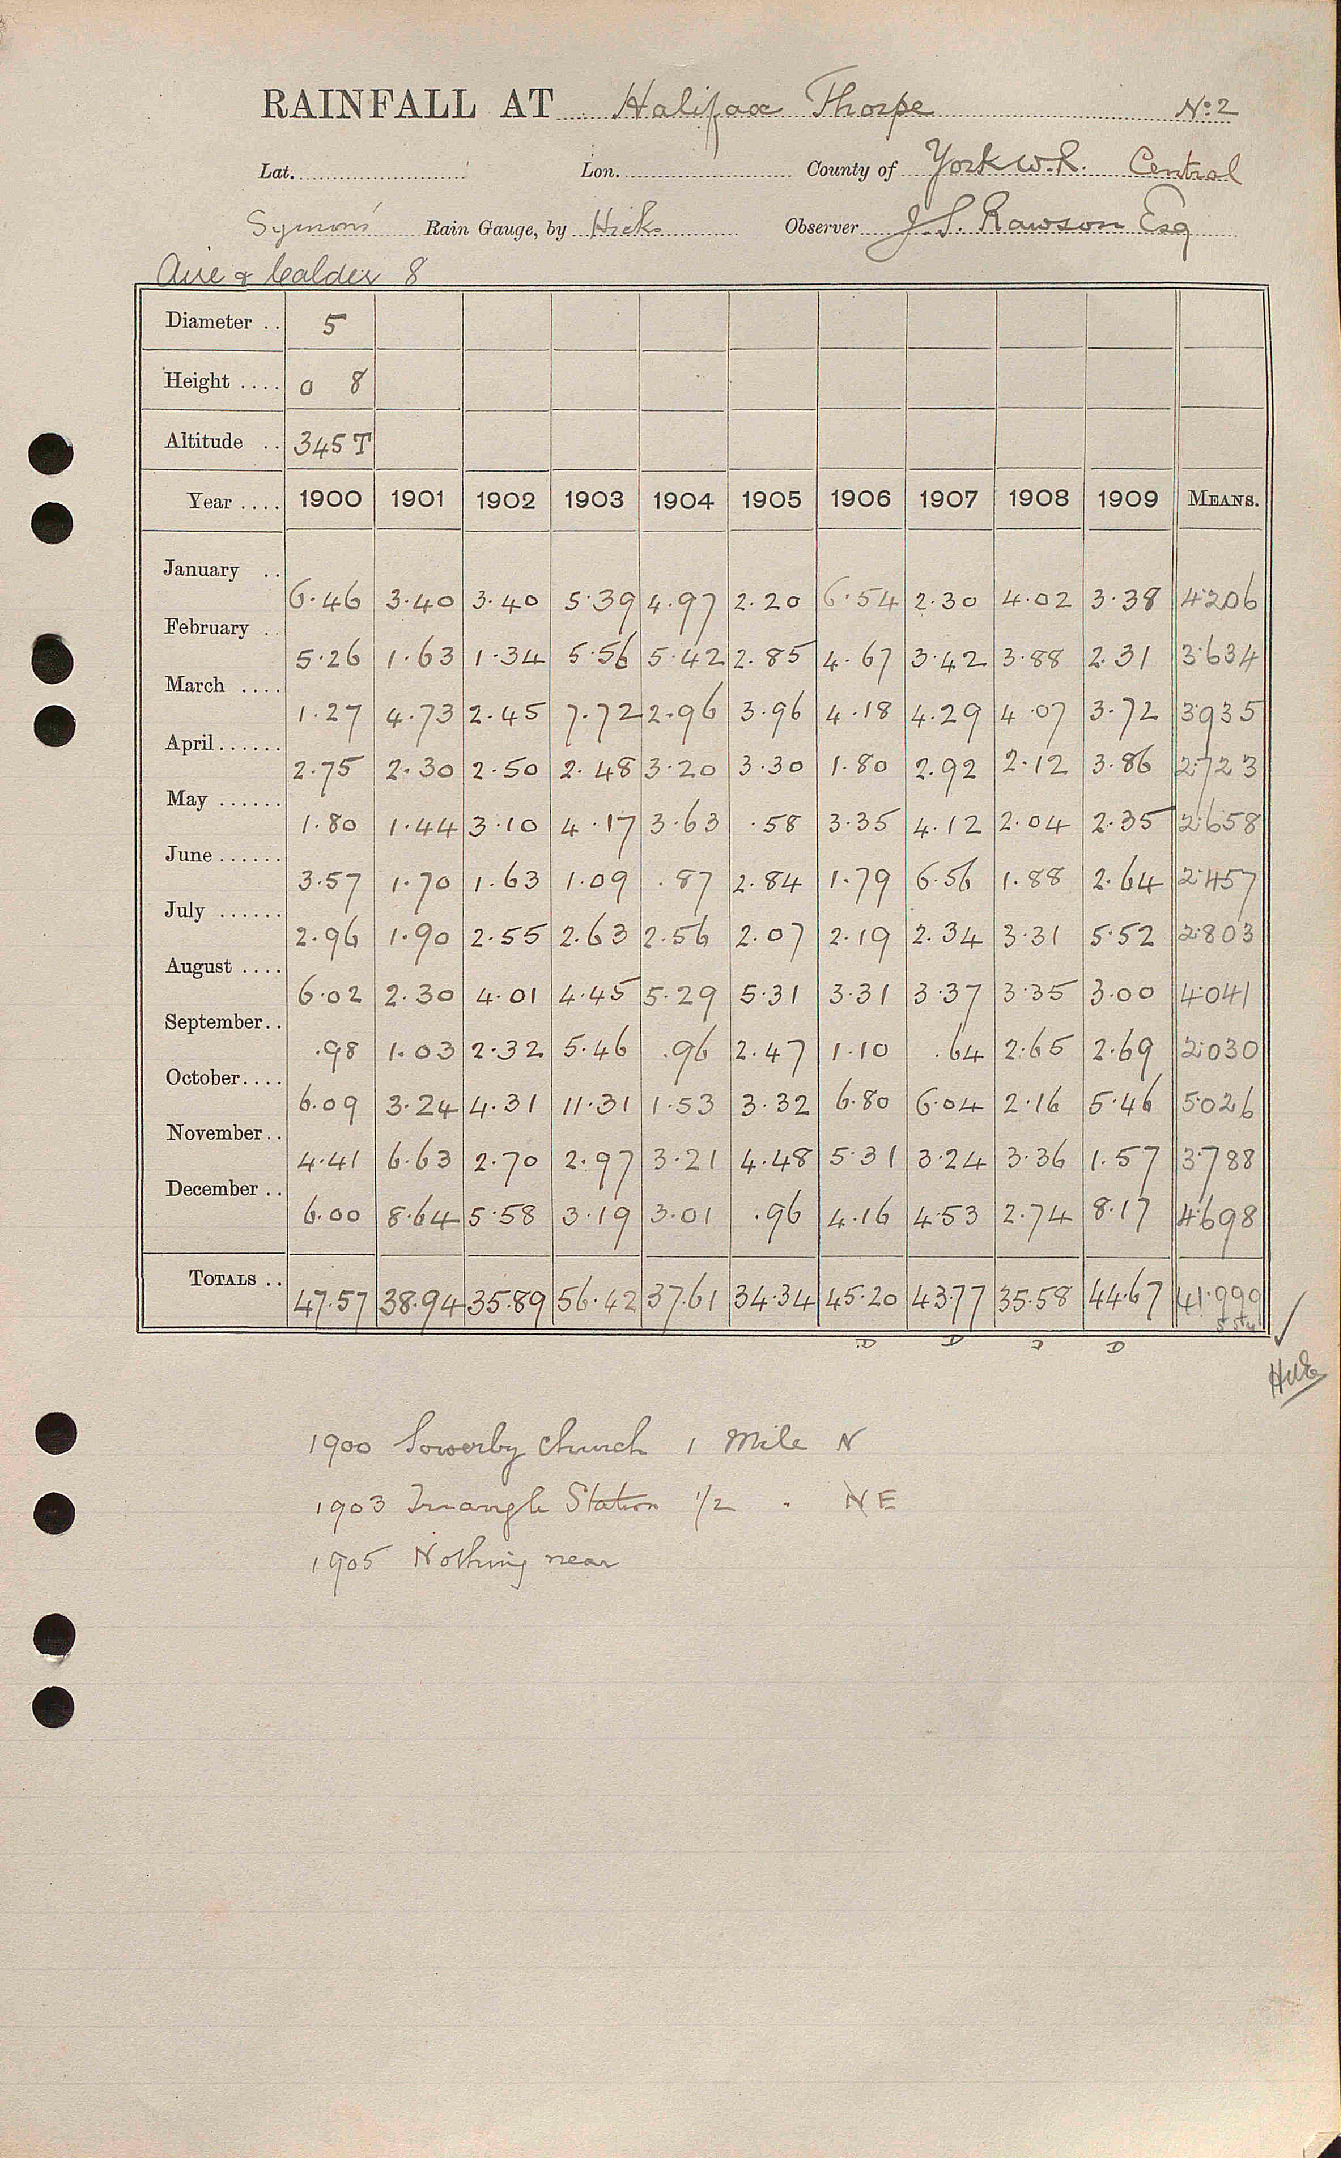 RAINFALL AT Halifax Thorpe No: 2
Lat. Lon. County of York W.R. Central
Symons' Rain Gauge, by Hicks Observer J. S. Rawson Esq
Aire & Calder 8
Diameter .. 5
Height .... 0 8
Altitude .. 345 T
Year .... 1900 1901 1902 1903 1904 1905 1906 1907 1908 1909 MEANS.
January .. 6.46 3.40 3.40 5.39 4.97 2.20 6.54 2.30 4.02 3.38 4.206
February .. 5.26 1.63 1.34 5.56 5.42 2.85 4.67 3.42 3.88 2.31 3.634
March .... 1.27 4.73 2.45 7.72 2.96 3.96 4.18 4.29 4.07 3.72 3.935
April ...... 2.75 2.30 2.50 2.48 3.20 3.30 1.80 2.92 2.12 3.86 2.723
May ...... 1.80 1.44 3.10 4.17 3.63 .58 3.35 4.12 2.04 2.35 2.658
June ...... 3.57 1.70 1.63 1.09 .87 2.84 1.79 6.56 1.88 2.64 2.457
July ...... 2.96 1.90 2.55 2.63 2.56 2.07 2.19 2.34 3.31 5.52 2.803
August .... 6.02 2.30 4.01 4.45 5.29 5.31 3.31 3.37 3.35 3.00 4.041
September .. .98 1.03 2.32 5.46 .96 2.47 1.10 .64 2.65 2.69 2.030
October .... 6.09 3.24 4.31 11.31 1.53 3.32 6.80 6.04 2.16 5.46 5.026
November .. 4.41 6.63 2.70 2.97 3.21 4.48 5.31 3.24 3.36 1.57 3.788
December .. 6.00 8.64 5.58 3.19 3.01 .96 4.16 4.53 2.74 8.17 4.698
TOTALS .. 47.57 38.94 35.89 56.42 37.61 34.34 45.20 43.77 35.58 44.67 41.999
D D D D
1900 Sowerby Church 1 Mile N
1903 Triangle Station 1/2 . NE
1905 Nothing near